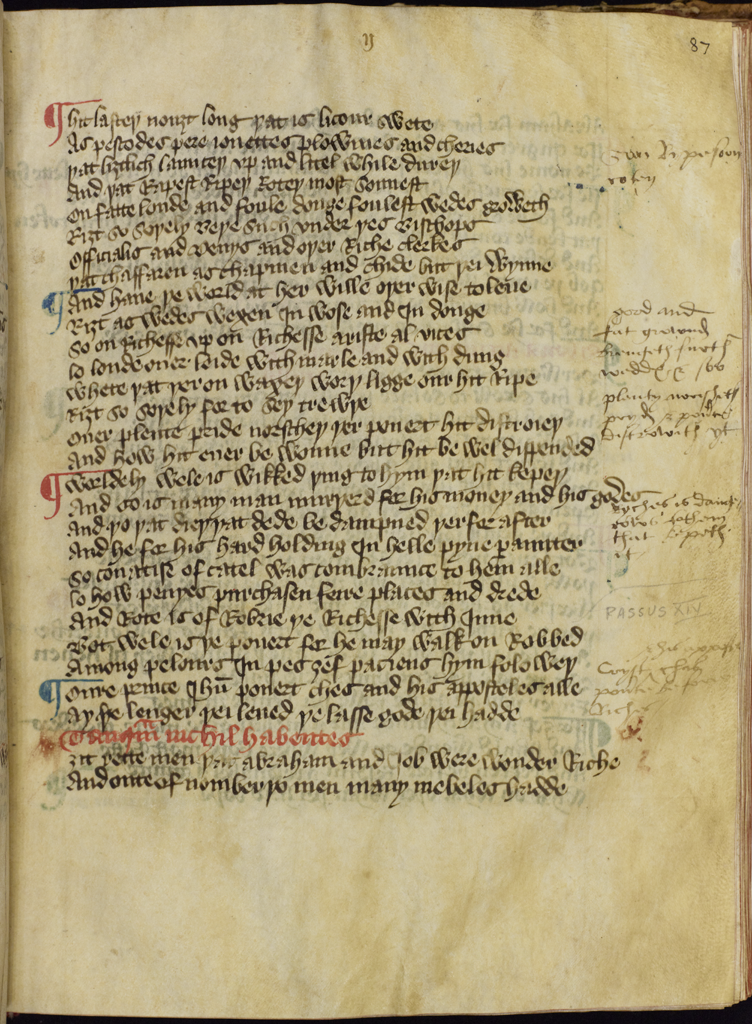 ij
87
Hit lasteþ nouȝt long þat is licour swete
As pescodes pere ionettes plowmes and cheries
þat liȝtlich launceþ vp and litel while dureþ
And þat Rapest Ripeþ Roteþ most sonnest
On fatte londe and foule donge foulest wedes groweth
Riȝt so soþely beþe such vnder þes Bisshops
Officialis and Denys and oþer Riche clerkes
þat chaffaren as chapmen and chide bit þei wynne
And haue þe world at her wille oþer wise to leue
Riȝt as wedes wexen In wose and In donge
So on Richesse vp on Richesse ariste al vices
lo londe ouer leide with marle and with dung
Whete þat þer on waxeþ worþ ligge our hit Ripe
Riȝt so soþely for to sey trewþe
Ouer plente pride norscheþ þer pouert hit distroieþ
And how hit euer be wonne but hit be wel dispended
Worldely wele is wikked þing to hym þat hit kepeþ
And so is many man murþerd for his money and his godes
And þo þat dieþ þat dede be dampned þerfor after
And he for his hard holding In helle pyne
So couatise of catel was combraunce to hem alle
lo how penyes purchasen feire places and drede
And Rote is of Robrie þe Richesse with Inne
Bot wele is þe pouert for he may walk on Robbed
Among pelours In pes ȝef paciens hym foloweþ
Oure prince Ihu pouert ches and his apposteles alle
Ay þe lenger þei leued þe lasse gode þei hadde
Tanqm nichil habentes
Ȝit rette men þat abraham and Job were wonder Riche
And oute of nomber þo men many mebeles hadde
good and
fat ground
plenty norsheth
distrowith yt
ryches is
that kepeth
it
PASSUS XIV